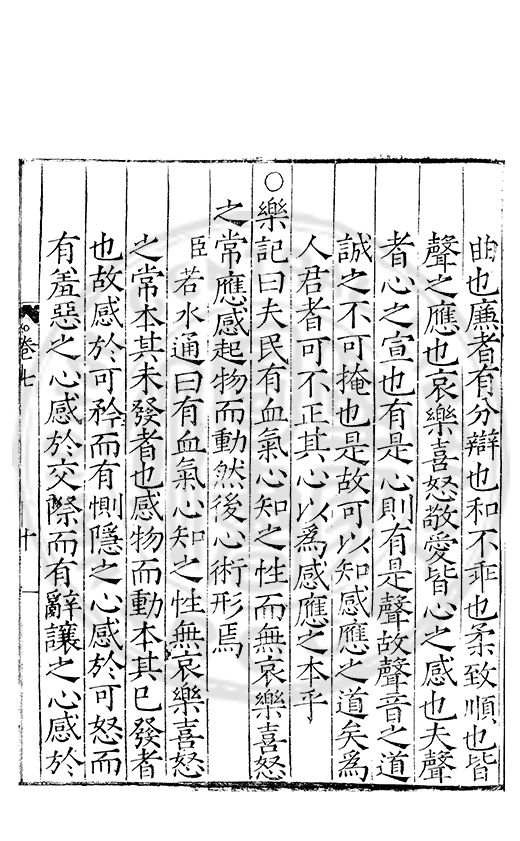 曲也廉者有分辯也和不乖也柔致順也皆
聲之應也哀樂喜怒敬愛皆心之感也夫聲
者心之宣也有是心則有是聲故聲音之道
誠之不可掩也是故可以知感應之道矣為
人君者可不正其心以爲感應之本乎
○樂記曰夫民有血氣心知之性而無哀樂喜怒
之常應感起物而動然後心術形焉
臣若水通曰有血氣心知之性無哀樂喜怒
之常本其未發者也感物而動本其已發者
也故感於可矜而有惻隱之心感於可怒而
有羞惡之心感於交際而有辭讓之心感於
卷七
十